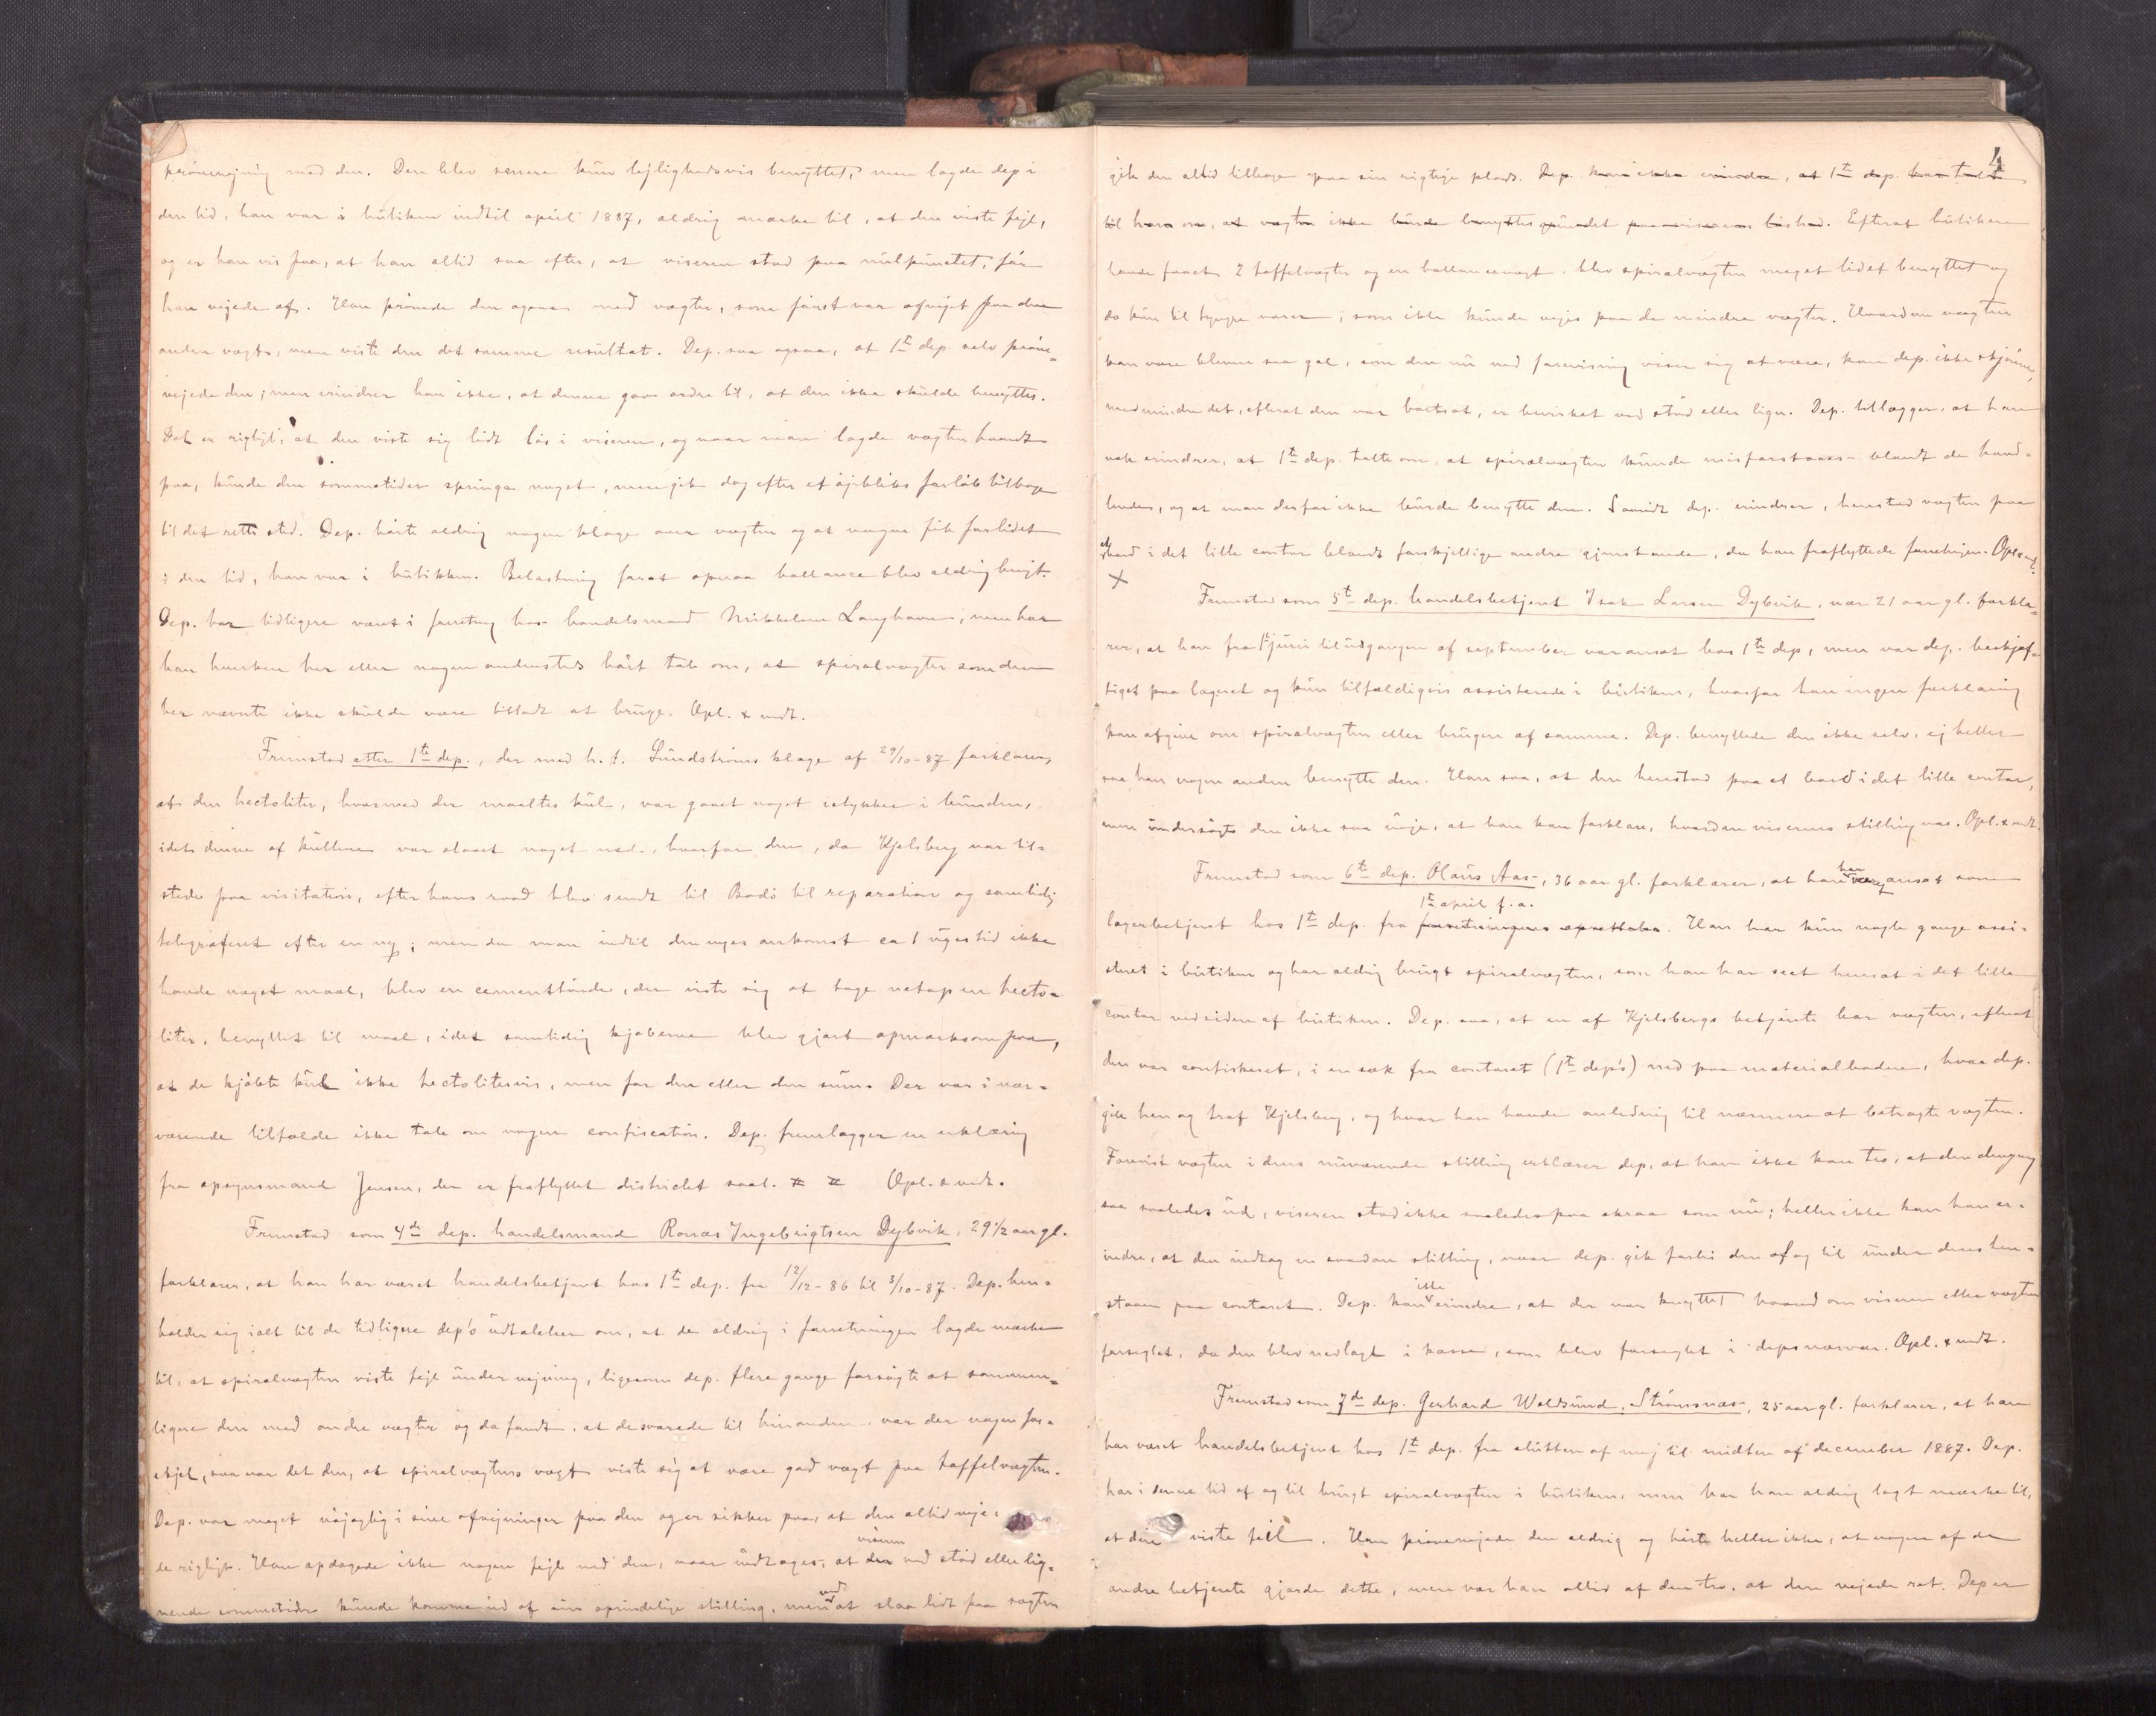 prøvevejning med den. Den blev senere kun lejlighedsvis benyttet, men lagde dep i
den tid, han var i butiken indtil april 1887, aldrig mærke til, at den viste fejl,
og er han vis paa, at han altid saa efter, at viseren stod paa nulpunctet, før
han vejede af. Han prøvede den ogsaa med vægter, som først var afvejet paa den
anden vægt, men viste den det samme resultat. Dep. saa ogsaa, at 1ste dep. selv prøve-
vejede den; men erindrer han ikke, at denne gav ordre til, at den ikke skulde benyttes.
Det er rigtigt, at den viste sig lidt løs i viseren, og naar man lagde vægten haardt
paa, kunde den sommetider springe noget, men gik dog efter et øjebliks forløb tilbage
til det rette sted. Dep. hørte aldrig nogen klage over vægten og at nogen fik forlidet
i den tid, han var i butikken. Belastning forat opnaa ballance blev aldrig brugt.
Dep. har tidligere været i forretning hos handelsmand Mikkelsen Langhavn, men har
han hverken her eller nogen andensteds hørt tale om, at spiralvægter som den
her nævnte ikke skulde være tilladt at bruge. Opl. & vedt.
Fremstod etter 1ste dep., der med h. t. Lundstrøms klage af 29/10-87 forklarer,
at den hectoliter, hvormed der maaltes kul, var gaaet noget istykker i bunden,
idet denne af kullene var slaaet noget ned, hvorfor den, da Kjelsberg var til-
stede paa visitation, efter hans raad blev sendt til Bodø til reparation og samtidig
telegraferet efter en ny; men da man indtil den nyes ankomst ca 1 uges tid ikke
havde noget maal, blev en cementtønde, der viste sig at tage netop en hecto-
liter, benyttet til maal, idet samtidig kjøberne blev gjort opmærksom paa,
at de kjøbte kul ikke hectolitervis, men for den eller den sum. Der var i nær-
værende tilfælde ikke tale om nogen confiscation. Dep. fremlægger en erklæring
fra opsynsmand Jensen, der er fraflyttet districtet saal. # # Opl. & vedt.
Fremstod som 4de dep. handelsmand Ronæs Ingebrigtsen Dybvik, 29 1/2 aar gl.
forklarer, at han har været handelsbetjent hos 1ste dep. fra 12/12-86 til 3/10-87. Dep. hen-
holder sig ialt til de tidligere dep's udtalelser om, at de aldrig i forretningen lagde mærke
til, at spiralvægten viste fejl under vejning, ligesom dep. flere gange forsøgte at sammen-
ligne den med andre vægter og da fandt, at de svarede til hinanden. var der nogen for-
skjel, saa var det den, at spiralvægtens vægt viste sig at være god vægt paa taffelvægten.
Dep. var meget nøjagtig i sine afvejninger paa den og er sikker paa, at den altid veje-
de rigtigt. Han opdagede ikke nogen fejl ved den, naar undtages, at den viseren ved stød eller lig-
nende sommetider kunde komme ud af sin oprindelige stilling, men ved at slaa lidt paa vægten
4
gik den altid tilbage paa sin rigtige plads. Dep. kan ikke erindre, at 1ste dep. har talt
til ham om, at vægten ikke burde benyttes grundet paa viserens løshed. Efterat butiken
havde faaet 2 taffelvægter og en ballancevægt, blev spiralvægten meget lidet benyttet og
da kun til tyngre varer, som ikke kunde vejes paa de mindre vægter. Hvordan vægten
kan være bleven saa gal, som den nu ved forevisning viser sig at være, kan dep. ikke skjønne,
medmindre det, efterat den var bortsat, er bevirket ved stød eller lign. Dep. tillægger, at han
nok erindrer, at 1ste dep. talte om, at spiralvægten kunde misforstaaes blandt de hand-
lende, og at man derfor ikke burde benytte den. Saavidt dep. erindrer, henstod vægten paa
et bord i det lille contor blandt forskjellige andre gjenstande, da han fraflyttede forretningen. Opl. & vedt.
X
Fremstod som 5te dep. handelsbetjent Isak Larsen Dybvik, nær 21 aar gl. forkla-
rer, at han fra 1ste juni til udgangen af september var ansat hos 1ste dep, men var dep. beskjæf-
tiget paa lageret og kun tilfældigvis assisterede i butiken, hvorfor han ingen forklaring
kan afgive om spiralvægten eller brugen af samme. Dep. benyttede den ikke selv. ej heller
saa han nogen anden benytte den. Han saa, at den henstod paa et bord i det lille contor,
men undersøgte den ikke saa nøje, at han kan forklare, hvordan viserens stilling var. Opl. & vedt.
Fremstod som 6te dep. Olaus Aas, 36 aar gl. forklarer, at han har været ansat som
lagerbetjent hos 1ste dep. fra forretningens oprettelse 1ste april f. a. Han har kun nogle gange assi-
steret i butiken og har aldrig brugt spiralvægten, som han har seet hensat i det lille
contor ved siden af butiken. Dep. saa, at en af Kjelsbergs betjente bar vægten, efterat
den var confiskeret, i en sæk fra contoret (1ste dep's) ned paa materialboden, hvor dep.
gik hen og traf Kjelsberg, og hvor han havde anledning til nærmere at betragte vægten.
Forevist vægten i dens nuværende stilling erklærer dep, at han ikke kan tro, at den dengang
saa saaledes ud, viseren stod ikke saaledes paa skraa som nu; heller ikke kan han er-
indre, at den indtog en saadan stilling, naar dep. gik forbi den af og til under dens hen-
staaen paa contoret. Dep. kan ikke erindre, at der var knyttet baand om viseren eller vægten
forseglet, da den blev nedlagt i kasse, som blev forseglet i deps nærvær. Opl. & vedt.
Fremstod som 7de dep. Gerhard Woldsund, Strømsnæs, 25 aar gl. forklarer, at han
har været handelsbetjent hos 1ste dep. fra slutten af maj til midten af december 1887. Dep.
har i denne tid af og til brugt spiralvægten i butiken, men har han aldrig lagt mærke til,
at den viste feil. Han prøvevejede den aldrig og hørte heller ikke, at nogen af de
andre betjente gjorde dette, men var han altid af den tro, at den vejede ret. Dep er